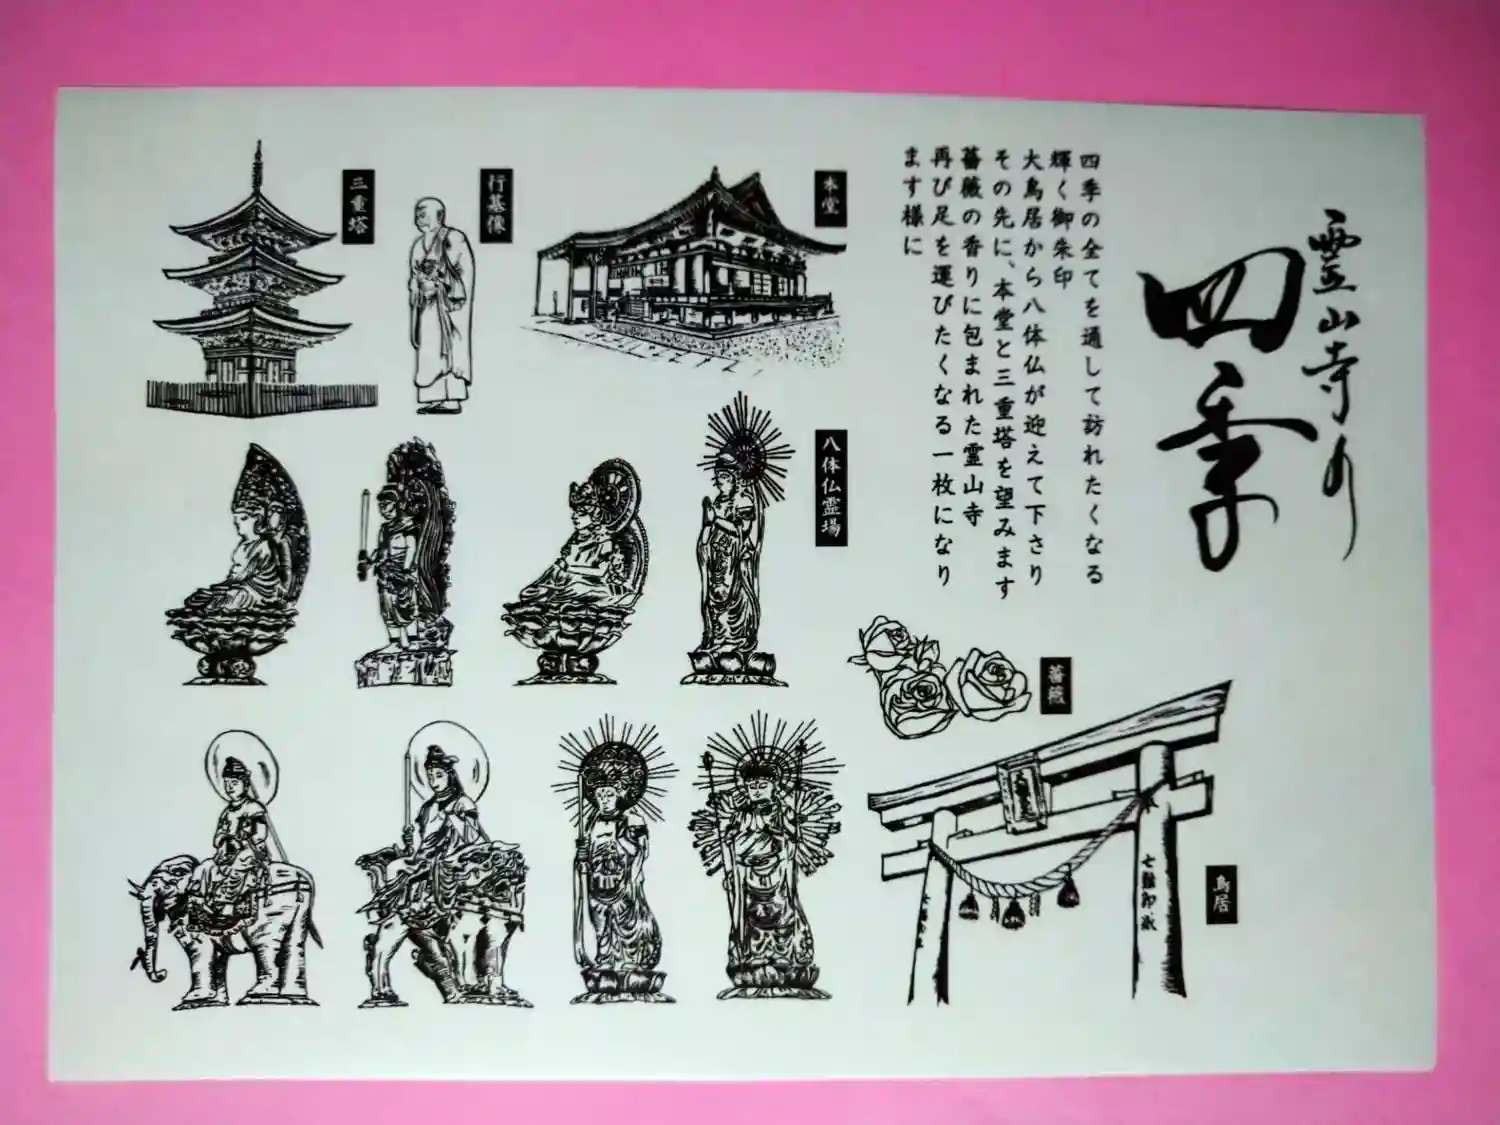 霊山寺の
四季
四季の全てを通して訪れたくなる
輝く御朱印
大鳥居から八体仏が迎えて下さり
その先に、本堂と三重塔を望みます
薔薇の香りに包まれた霊山寺
再び足を運びたくなる一枚になり
ます様に
本堂
行基像
三重塔
八体仏霊場
薔薇
鳥居